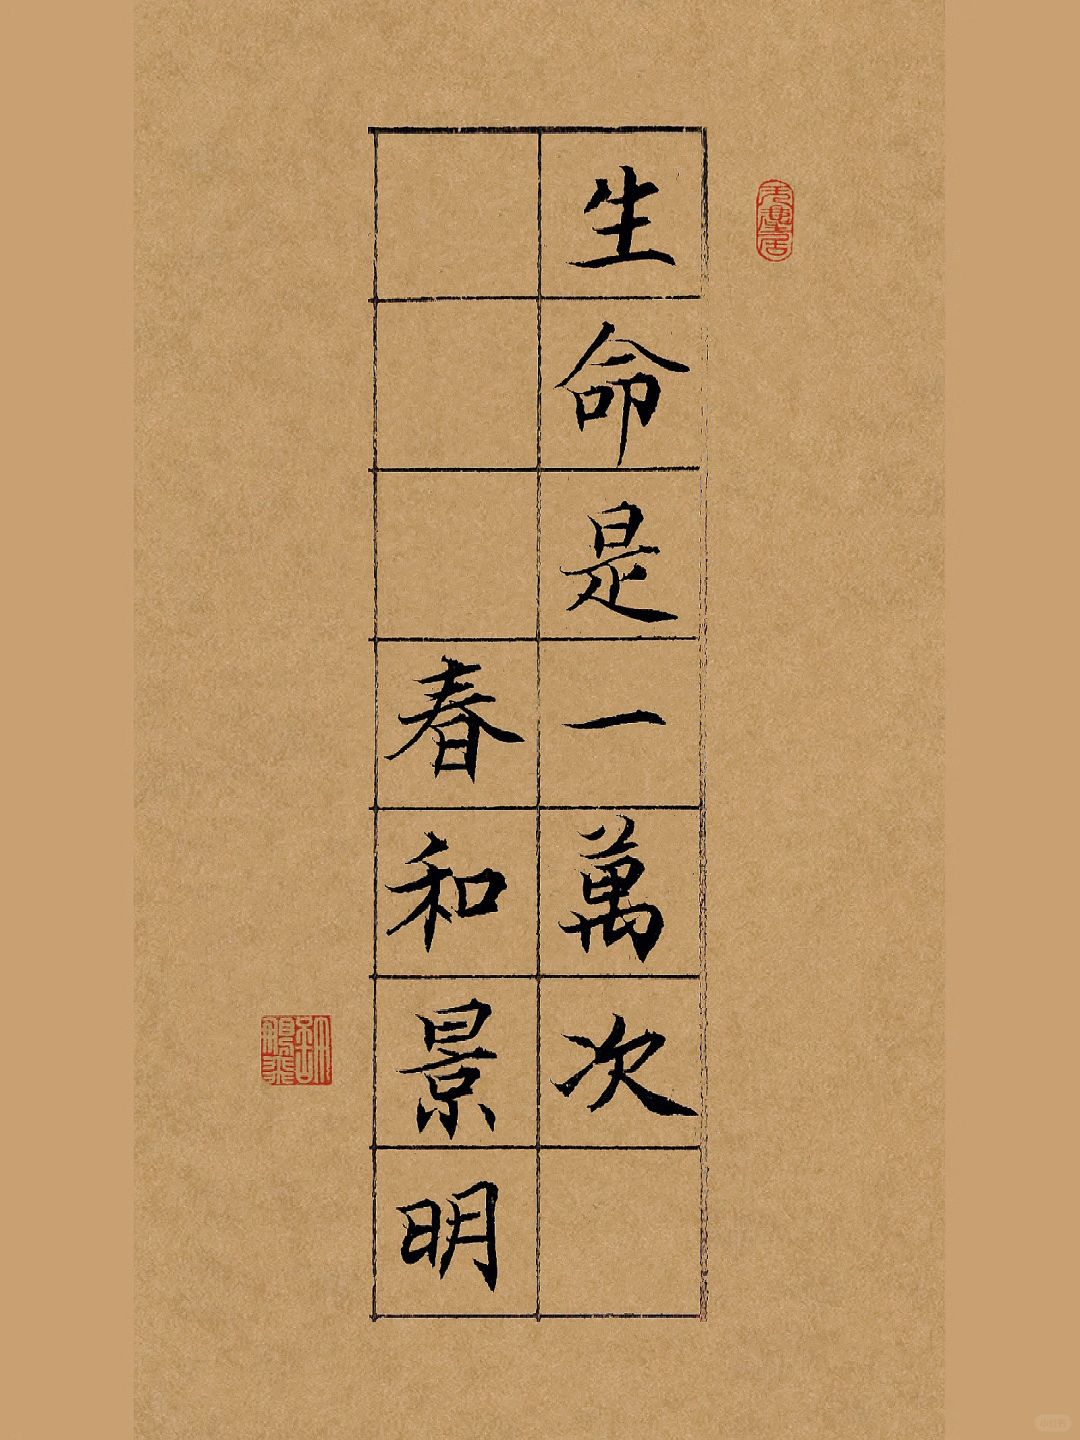 生命是一萬次
春和景明